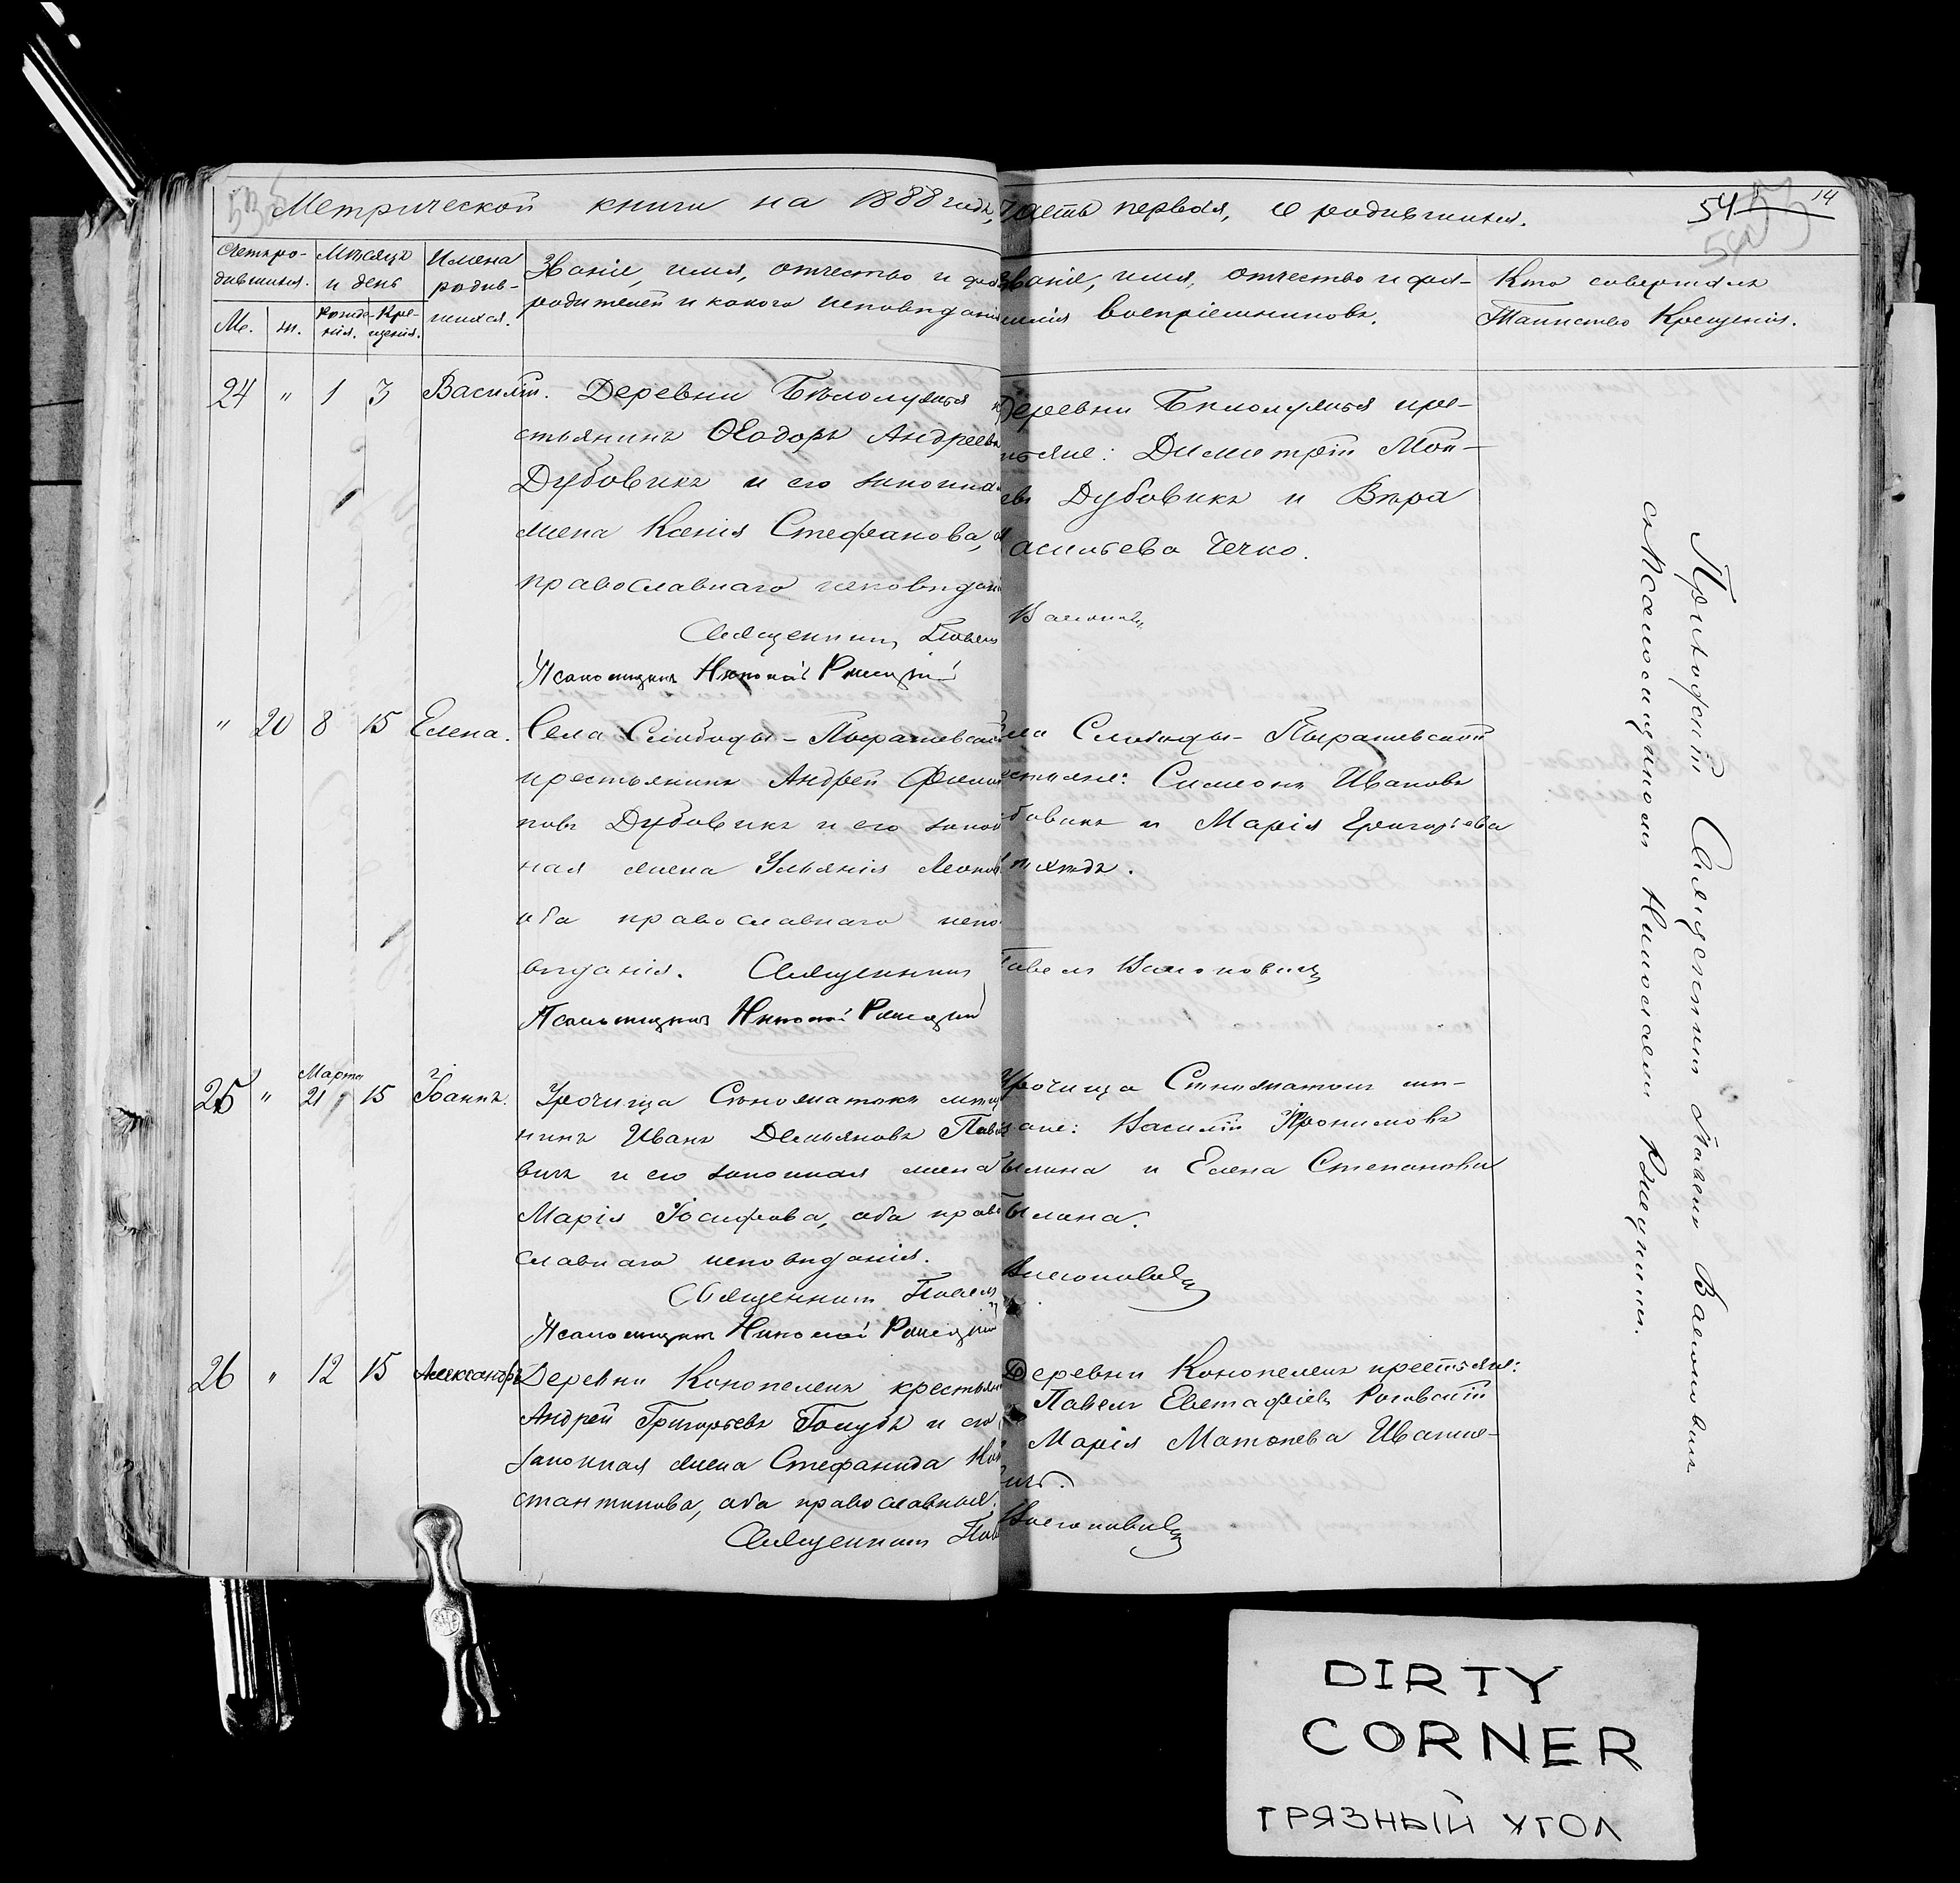 Метрической книги на 1888 годъ, Часть первая, о родившихся.
54 14
Счетъ ро-
дившихся.
М. ж.
Мѣсяцъ
и день
Рожде-
нія.
Кре-
щенія.
Имена
родив-
шихся.
Званіе, имя, отчество и фа
родителей и какого исповѣдані
Званіе, имя, отчество и фам-
милія воспріемниковъ.
Кто совершалъ
Таинство Крещенія.
24 " 1 3 Василій. Деревни Бѣлолужья к
стьянинъ Ѳеодоръ Андреевъ
Дубовикъ и его законна
жена Ксенія Стефанова,
православнаго исповѣдані
Священникъ Павелъ
Псаломщикъ Николай
Деревни Бѣлолужья кре-
тьяне: Димитрій Мои-
евъ Дубовикъ и Вѣра
асильева Чечко.
" 20 8 15 Елена. Села Слободы-Пырашевской
крестьянинъ Андрей Филип
повъ Дубовикъ и его закон
ная жена Ульянія Леонов
оба православнаго испо
вѣданія. Священникъ
Псаломщикъ Николай
ла Слободы-Пырашевской
естьяне: Симеонъ Ивановъ
бовикъ и Марія Григорьева
Павелъ
25 " Марта 21 15 Іоаннъ. Урочища Сѣножатокъ мѣща
нинъ Иванъ Демьяновъ Павло
вичъ и его законная жена
Марія Іосифова, оба право
славнаго исповѣданія.
Священникъ Павелъ
Псаломщикъ Николай
Урочища Сѣножатокъ мѣ-
ане: Василій
и Елена Степанова
26 " 12 15 Александръ Деревни Конопелекъ крестьян
Андрей Григорьевъ Голубъ и его
законная жена Стефанида Кон
стантинова, оба православные.
Священникъ Пав
Деревни Конопелекъ крестьяне:
Павелъ Евстафіевъ Роговскій
Марія Матвѣева Ивашке-
ичъ.
Приходскій Священникъ Павелъ
съ Псаломщикомъ Николаемъ
DIRTY
CORNER
ГРЯЗНЫЙ УГОЛ